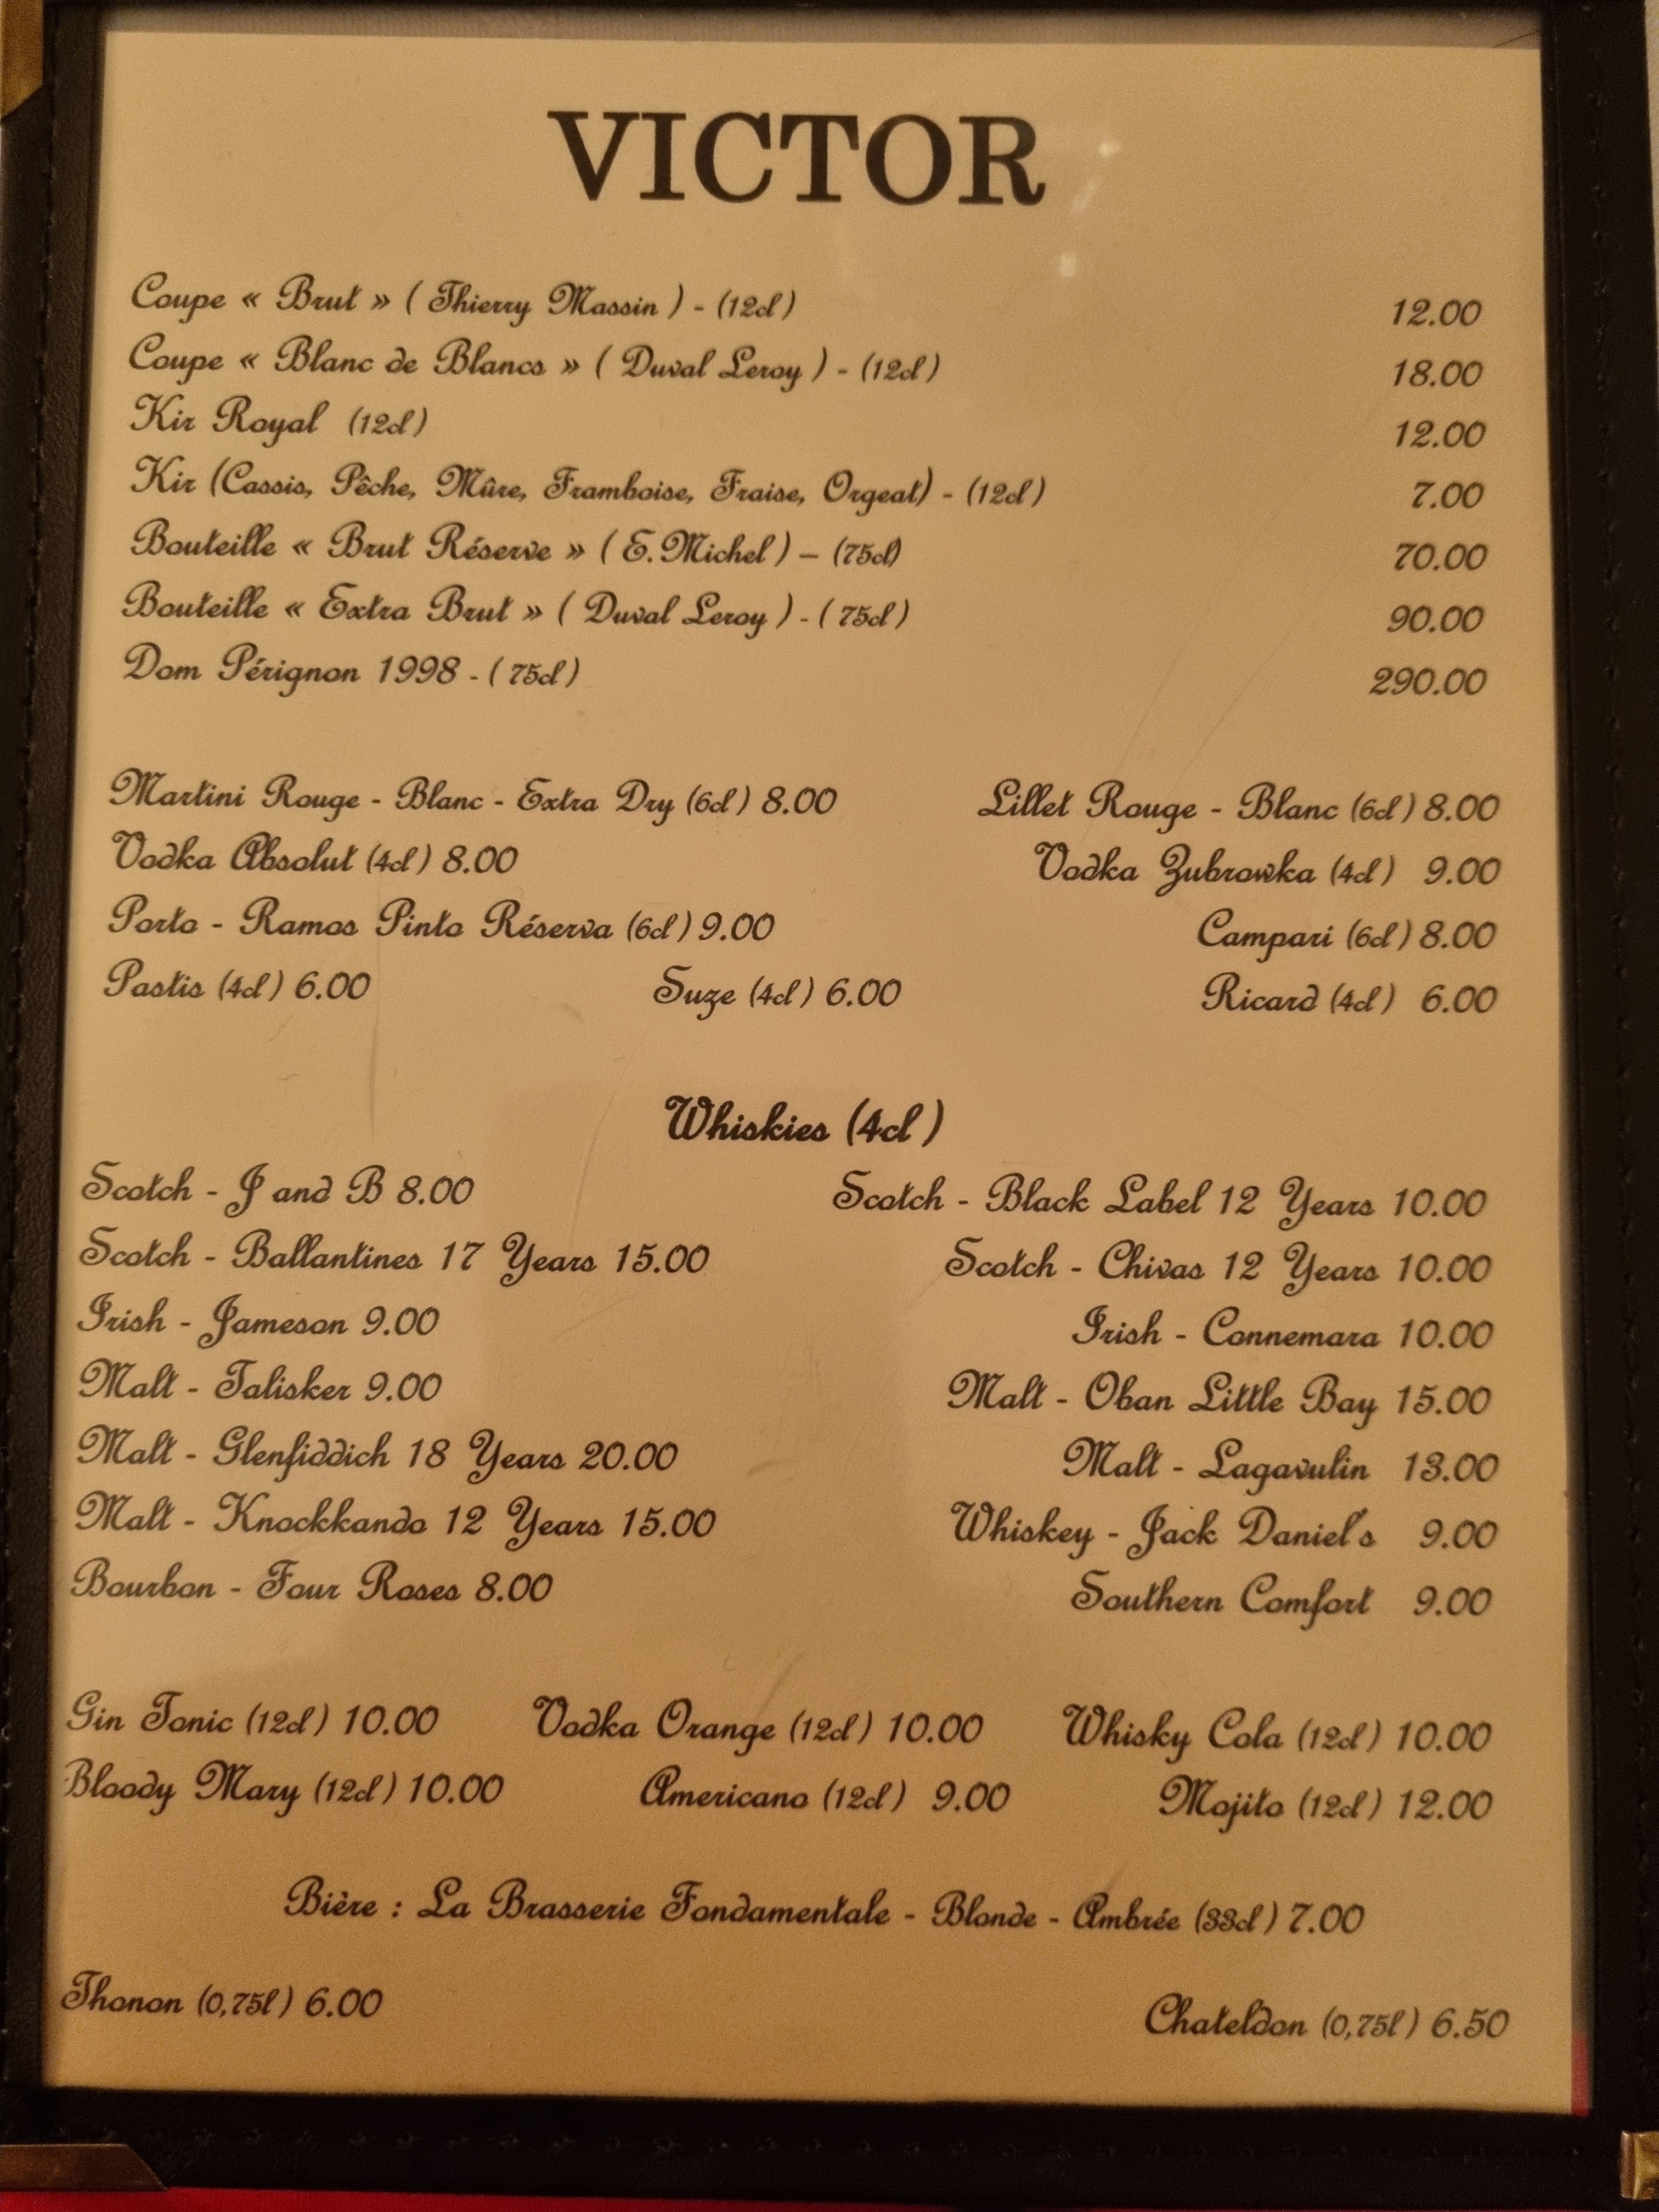 VICTOR
Coupe « Brut » ( Thierry Massin ) - (12cl) 12.00
Coupe « Blanc de Blancs » ( Duval Leroy ) - (12cl) 18.00
Kir Royal (12cl) 12.00
Kir (Cassis, Pêche, Mûre, Framboise, Fraise, Orgeat) - (12cl) 7.00
Bouteille « Brut Réserve » ( E.Michel ) – (75cl) 70.00
Bouteille « Extra Brut » ( Duval Leroy ) - ( 75cl ) 90.00
Dom Pérignon 1998 - ( 75cl ) 290.00
Martini Rouge - Blanc - Extra Dry (6cl) 8.00 Lillet Rouge - Blanc (6cl) 8.00
Vodka Absolut (4cl) 8.00 Vodka Zubrowka (4cl) 9.00
Porto - Ramos Pinto Réserva (6cl) 9.00 Campari (6cl) 8.00
Pastis (4cl) 6.00 Suze (4cl) 6.00 Ricard (4cl) 6.00
Whiskies (4cl )
Scotch - J and B 8.00 Scotch - Black Label 12 Years 10.00
Scotch - Ballantines 17 Years 15.00 Scotch - Chivas 12 Years 10.00
Irish - Jameson 9.00 Irish - Connemara 10.00
Malt - Talisker 9.00 Malt - Oban Little Bay 15.00
Malt - Glenfiddich 18 Years 20.00 Malt - Lagavulin 13.00
Malt - Knockkando 12 Years 15.00 Whiskey - Jack Daniel's 9.00
Bourbon - Four Roses 8.00 Southern Comfort 9.00
Gin Tonic (12cl) 10.00 Vodka Orange (12cl) 10.00 Whisky Cola (12cl) 10.00
Bloody Mary (12cl) 10.00 Americano (12cl) 9.00 Mojito (12cl) 12.00
Bière : La Brasserie Fondamentale - Blonde - Ambrée (33cl) 7.00
Thonon (0,75l) 6.00 Chateldon (0,75l) 6.50